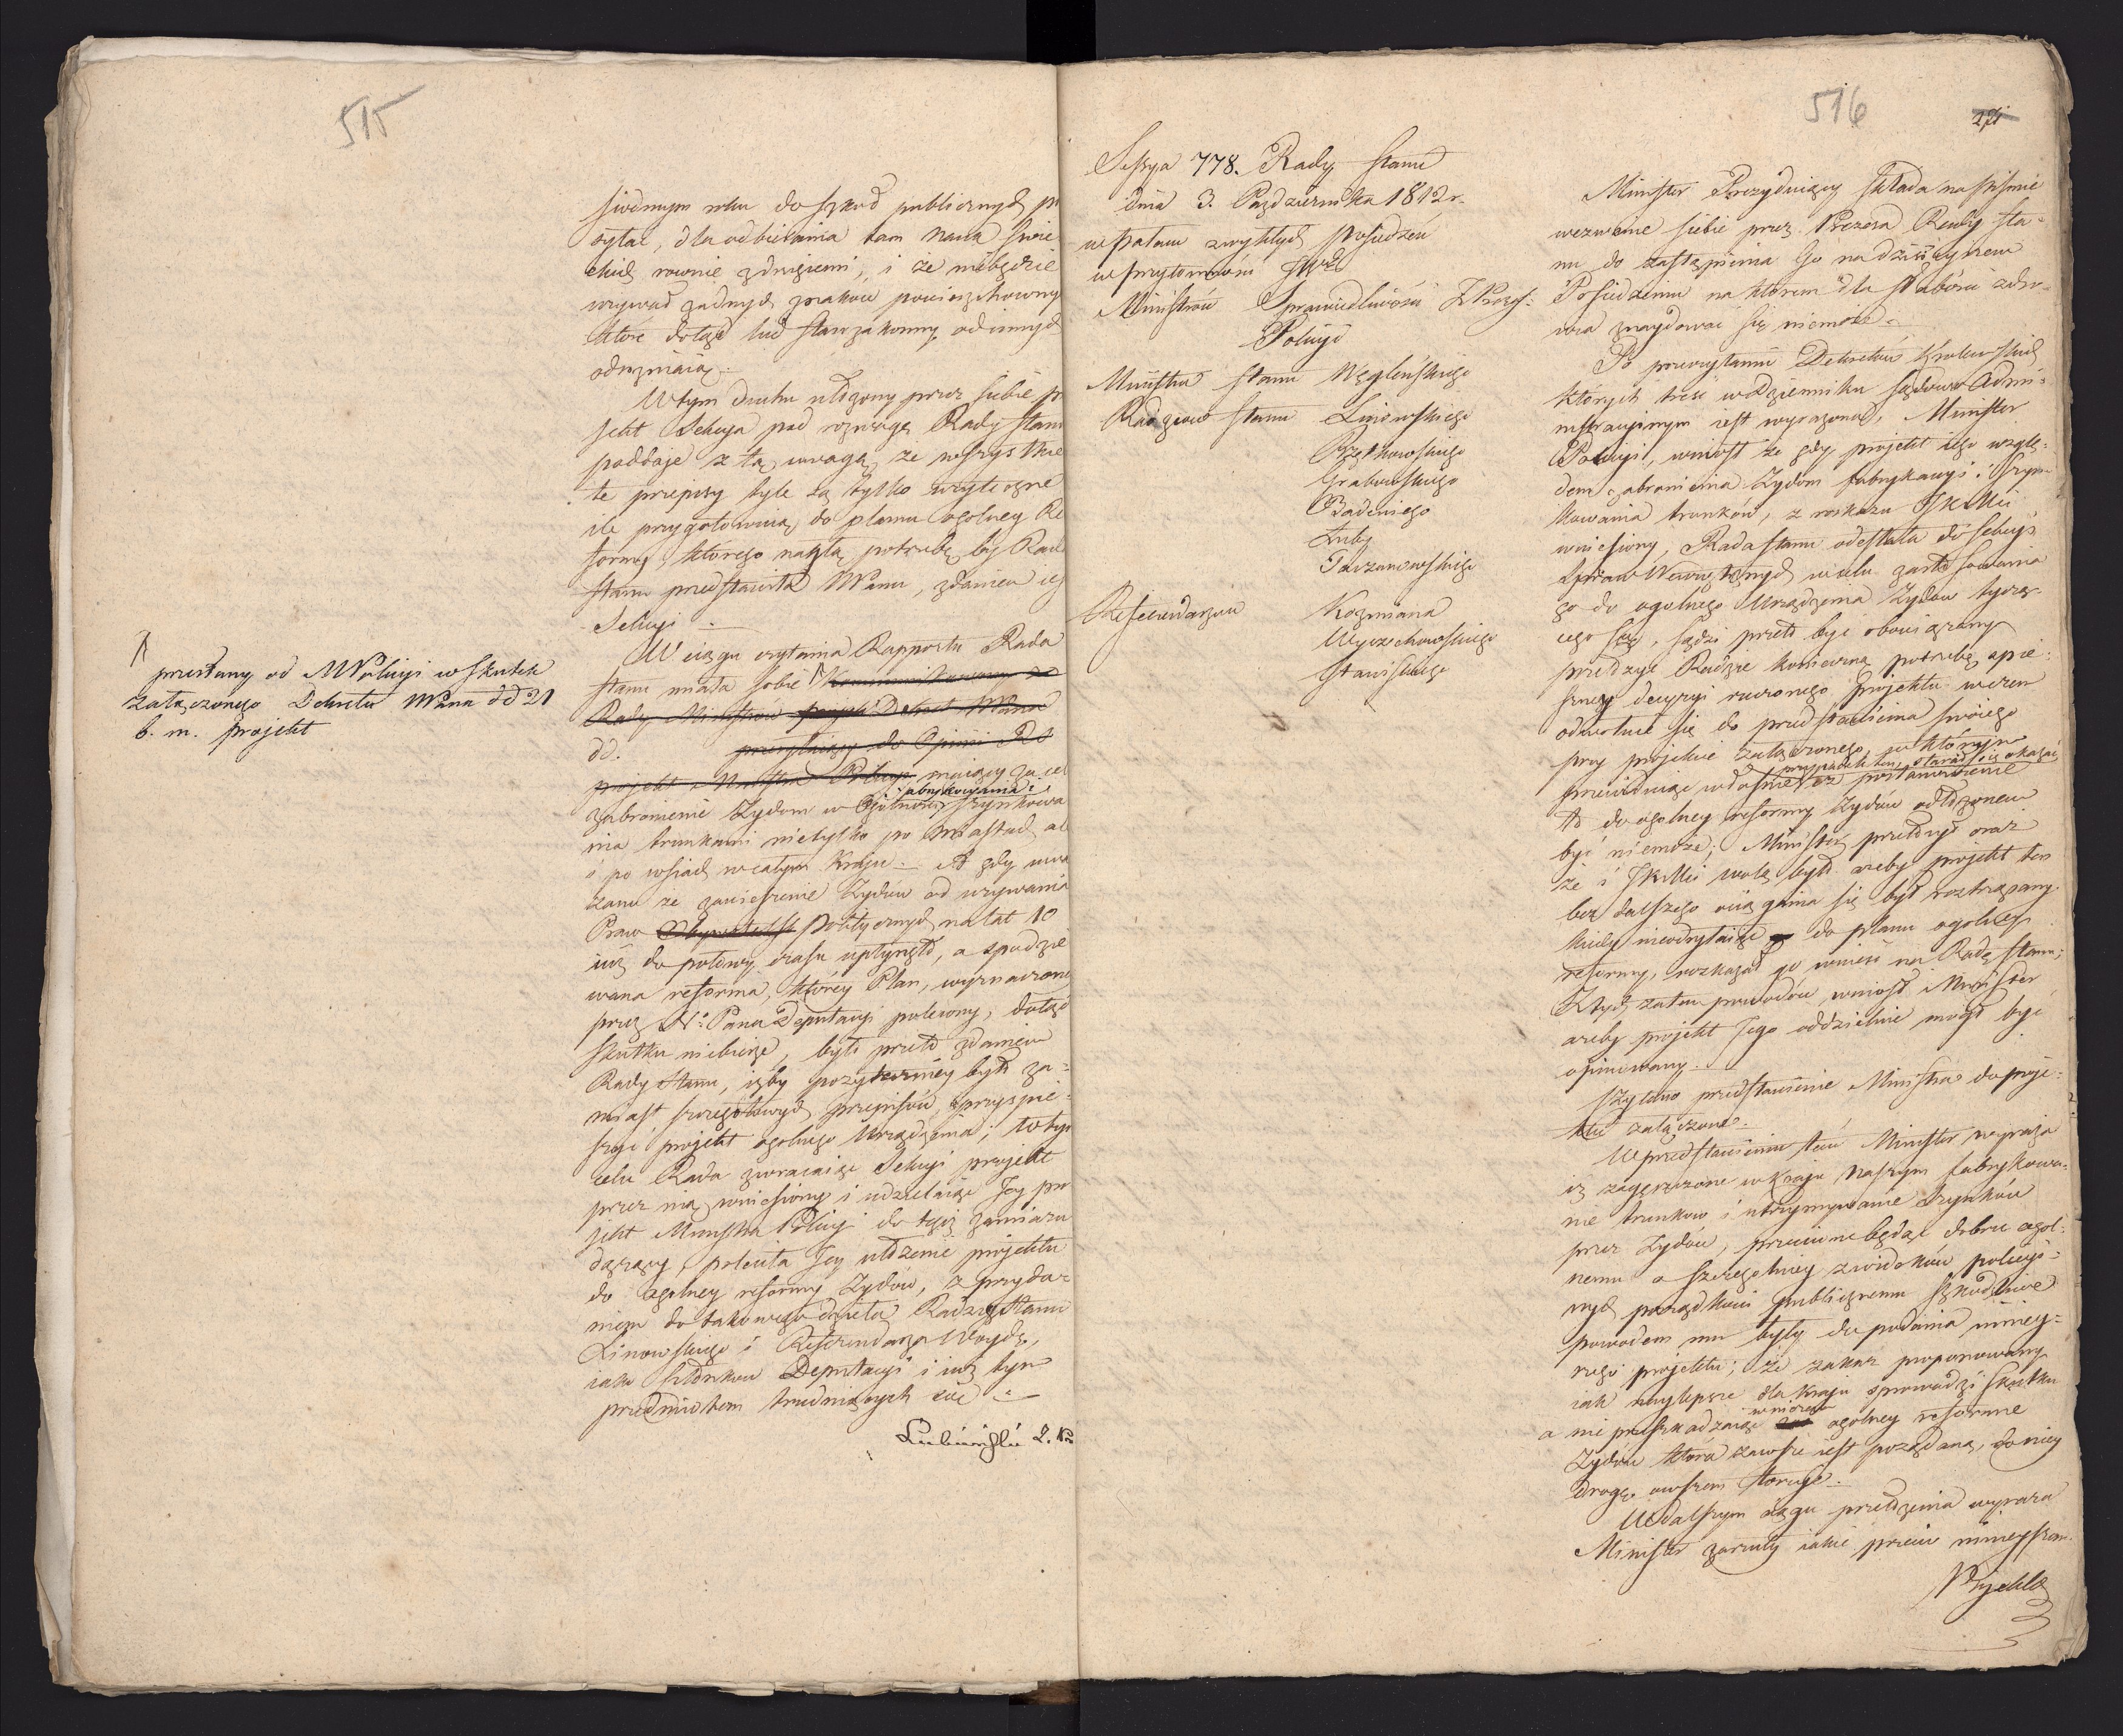 515
siódmym roku do szkół publicznych p
sytać, dla odbierania tam nauk świe
ckich rownie z drugiemi, i że niebędzie
wzywać żadnych znaków powierzchownych
które dotąd lud starozakonny od innych
odrożniaią.
W tym duchu ułożony przez siebie pr
jekt Sekcya pod rozwagę Rady Stanu
poddaje z tą uwagą, że wszystkie
te przepisy tyle są tylko użyteczne
ile przygotowuią do planu ogolney Re
formy którego nagłą potrzebę by Rada
Stanu przedstawiła NPanu, zdaniem iey
Sekcyi.
W ciągu czytania Rapportu Rada
Stanu miała sobie
Rady Ministrów Dekret NPana
dd. przesyłaiący do Opinii
projekt Ministra Policyi maiący za cel
zabronienie Żydom w Ogólności fabrykowania i szynkowa
nia trunkami nietylko po Miastach al
i po wsiach w całym Kraju. A gdy uwa
żano że zawieszenie Żydów od używania
Praw Politycznych na lat 10
iuż do połowy czasu upłynęło, a spodzie
wana reforma, którey Plan, wyznaczoney
przez N. Pana Deputacyi polecony, dotąd
skutku niebierze, było przeto zdaniem
Rady Stanu, iżby pożyteczniey było za-
miast szczegółowych przepisów, przyspie-
szyć projekt ogolnego Urządzenia; w tym
celu Rada zwracaiąc Sekcyi projekt
przez nią wniesiony i udzielaiąc Jey pro
jekt Ministra Policyi do tegoż zamiaru
dążący, poleciła Jey ułożenie projektu
do ogolney reformy Żydów, z przyda-
niem do takowego dzieła Radzcy Stanu
Linowskiego i Referendarza Woydy,
iako członków Deputacyi i iuż tym
przedmiotem trudniących się.
przesłany od MPolicyi w skutek
załączonego Dekretu NPana dd 21
b. m. projekt
516
Sessya 778. Rady Stanu
dnia 3. Pazdziernika 1812 r.
w pałacu zwykłych posiedzeń
w przytomności JWch
Ministrów Sprawiedliwości
Policyi
Ministra Stanu Węgleńskiego
Radzców Stanu Linowskiego
Grabowskiego
Badeniego
Łuby
Tarzanowskiego
Referendarzów Kozmiana
Wyczechowskiego
Staniskiego
Minister Prezyduiący składa na piśmie
wezwanie siebie przez Prezesa Rady Sta-
nu do zastąpienia Go na dzisieyszem
Posiedzeniu na którem dla słabości zdro-
wia znaydować się niemoże.
Po przeczytaniu Dekretów Krolewskich
których treść w dzienniku Sądowo Admi-
nistracyinym iest wyrażona, Minister
Policyi, wniosł że gdy projekt iego wzglę-
dem zabronienia Żydom fabrykacyi i szyn
kowania trunków, z roskazu JKMci
wniesiony, Rada Stanu odesłała do Sekcyi
Spraw Wewnętrznych w celu zastosowania
go do ogolnego Urządzenia Żydów tyczą-
cego się, sądzi przeto być obowiązany
przełożyć Radzie konieczną potrzebę spie-
szney decyzyi rzeczonego projektu w czem
odwołuie się do przedstawienia swoiego
przy projekcie załączonego, w którym
przewiduiąc właśnie przypadek ten, starał się okazać
iż postanowienie
to do ogolney reformy Żydów odłożonem
być niemoże; Minister przełożył oraz
że i JKMci wolą było ażeby projekt ten
bez dalszego ociągania się był roztrząsany
kiedy nieodsyłaiąc go do planu ogolney
reformy, rozkazał go wnieść na Radę Stanu;
Z tych zatem powodów, wniosł Minister
ażeby projekt Jego oddzielnie mógł być
opiniowany.
Czytano przedstawienie Ministra do proje-
ktu załączone.
W przedstawieniu tem Minister wyraża
iż zagęszczone w Kraju naszym fabrykowa-
nie trunków i utrzymywanie szynków
przez Żydów, przeciwne będąc dobru ogol-
nemu a szczegolniey z widoków policyi-
nych porządkowi publicznemu szkodliwe
powodem mu były do podania ninieysz-
rego projektu; że zakaz proponowany
iak naylepsze dla Kraju sprowadzi skutki
a nieprzeszkadzaiąc w niczem ogolney reformie
Żydów która zawsze iest pożądana, do niey
drogę owszem toruje.
W dalszym ciągu przełożenia wyraża
Minister zarzuty iakie przeciw ninieyszem